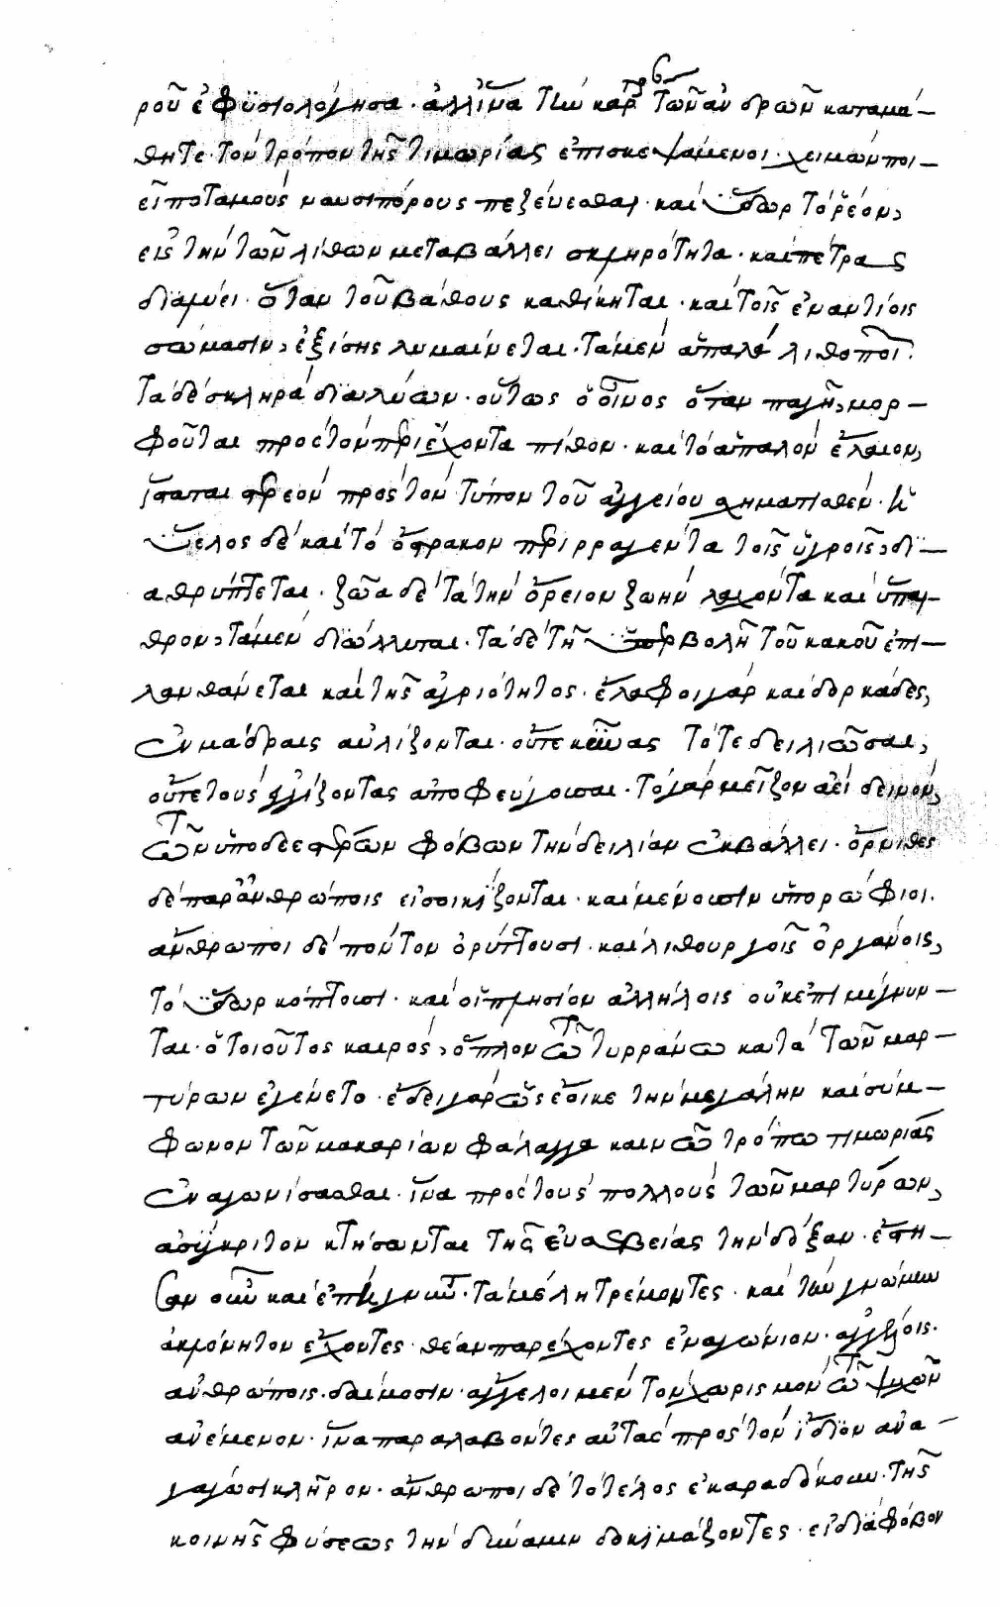 ροῦ ἐφυσιολόγησα· ἀλλ' ἵνα τὴν καρτερίαν τῶν ἀνδρῶν καταμά-
θητε· τὸν τρόπον τῆς τιμωρίας ἐπισκεψάμενοι· χειμὼν ποι-
εῖ ποταμοὺς ναυσιπόρους πεζεύεσθαι· καὶ ὕδωρ τὸ ῥέον,
εἰς τὴν τῶν λίθων μεταβάλλει σκληρότητα· καὶ πέτρας
διαλύει· ὅταν τοῦ βάθους καθίκηται· καὶ τοῖς ἐναντίοις
σώμασιν, ἐξίσης λυμαίνεται· τὰ μὲν ἁπαλὰ λιθοποι
τὰ δὲ σκληρὰ διαλύων· οὕτως ὁ οἶνος ὅταν παγῇ, μορ-
φοῦται πρὸς τὸν περιέχοντα πίθον· καὶ τὸ ἁπαλὸν ἔλαιον,
ἵσταται στερεὸν πρὸς τὸν τύπον τοῦ ἀγγείου σχηματισθέν·
ὕελος δὲ καὶ τὸ ὄστρακον περιρραγέντα τοῖς ὑγροῖς, δι-
αθρύπτεται· ζῶα δὲ τὰ τὴν ὄρειον ζωὴν λαχόντα καὶ ὕπαι-
θρον, τὰ μὲν διόλλυται· τὰ δὲ τῇ ὑπερβολῇ τοῦ κακοῦ ἐπι-
λανθάνεται καὶ τῆς ἀγριότητος· ἔλαφοι γὰρ καὶ δορκάδες,
ἐν μάνδραις αὐλίζονται· οὔτε κύνας τότε δειλιῶσαι,
οὔτε τοὺς ἐγγίζοντας ἀποφεύγουσαι· τὸ γὰρ μεῖζον ἀεὶ δεινόν,
τῶν ὑποδεεστέρων φόβων τὴν δειλίαν ἐκβάλλει· ὄρνιθες
δὲ παρ' ἀνθρώποις εἰσοικίζονται· καὶ μένουσιν ὑπορώφιοι.
ἄνθρωποι δὲ πόντον ὀρύττουσι· καὶ λιθουργοῖς ὀργάνοις,
τὸ ὕδωρ κόπτουσι· καὶ οἱ πλησίον ἀλλήλοις οὐκ ἐπιμίγνυν-
ται· ὁ τοιοῦτος καιρός, ὅπλον τῶ τυρράνω κατὰ τῶν μαρ-
τύρων ἐγένετο· ἔδει γὰρ ὡς ἔοικε τὴν μεγάλην καὶ σύμ-
φωνον τῶν μακαρίων φάλαγγα καινῶ τρόπω τιμωρίας
ἐναγωνίσασθαι· ἵνα πρὸς τοὺς πολλοὺς τῶν μαρτύρων,
ἀσύγκριτον κτήσωνται τῆς εὐσεβείας τὴν δόξαν· ἔστη-
σαν οὖν καὶ τὰ μέλη τρέμοντες· καὶ τὴν γνώμην
ἀκλόνητον ἔχοντες· θέαν παρέχοντες ἐναγώνιον· ἀγγέλοις.
ἀνθρώποις· δαίμοσιν· ἄγγελοι μὲν τὸν χωρισμὸν τῶν ψυχῶν
ἀνέμενον· ἵνα παραλαβόντες αὐτὰς πρὸς τὸν ἴδιον ἀνα-
γάγωσι κλῆρον· ἄνθρωποι δὲ τὸ τέλος ἐκαραδόκουν· τῆς
κοινῆς φύσεως τὴν δύναμιν δοκιμάζοντες· εἰ διὰ φόβον